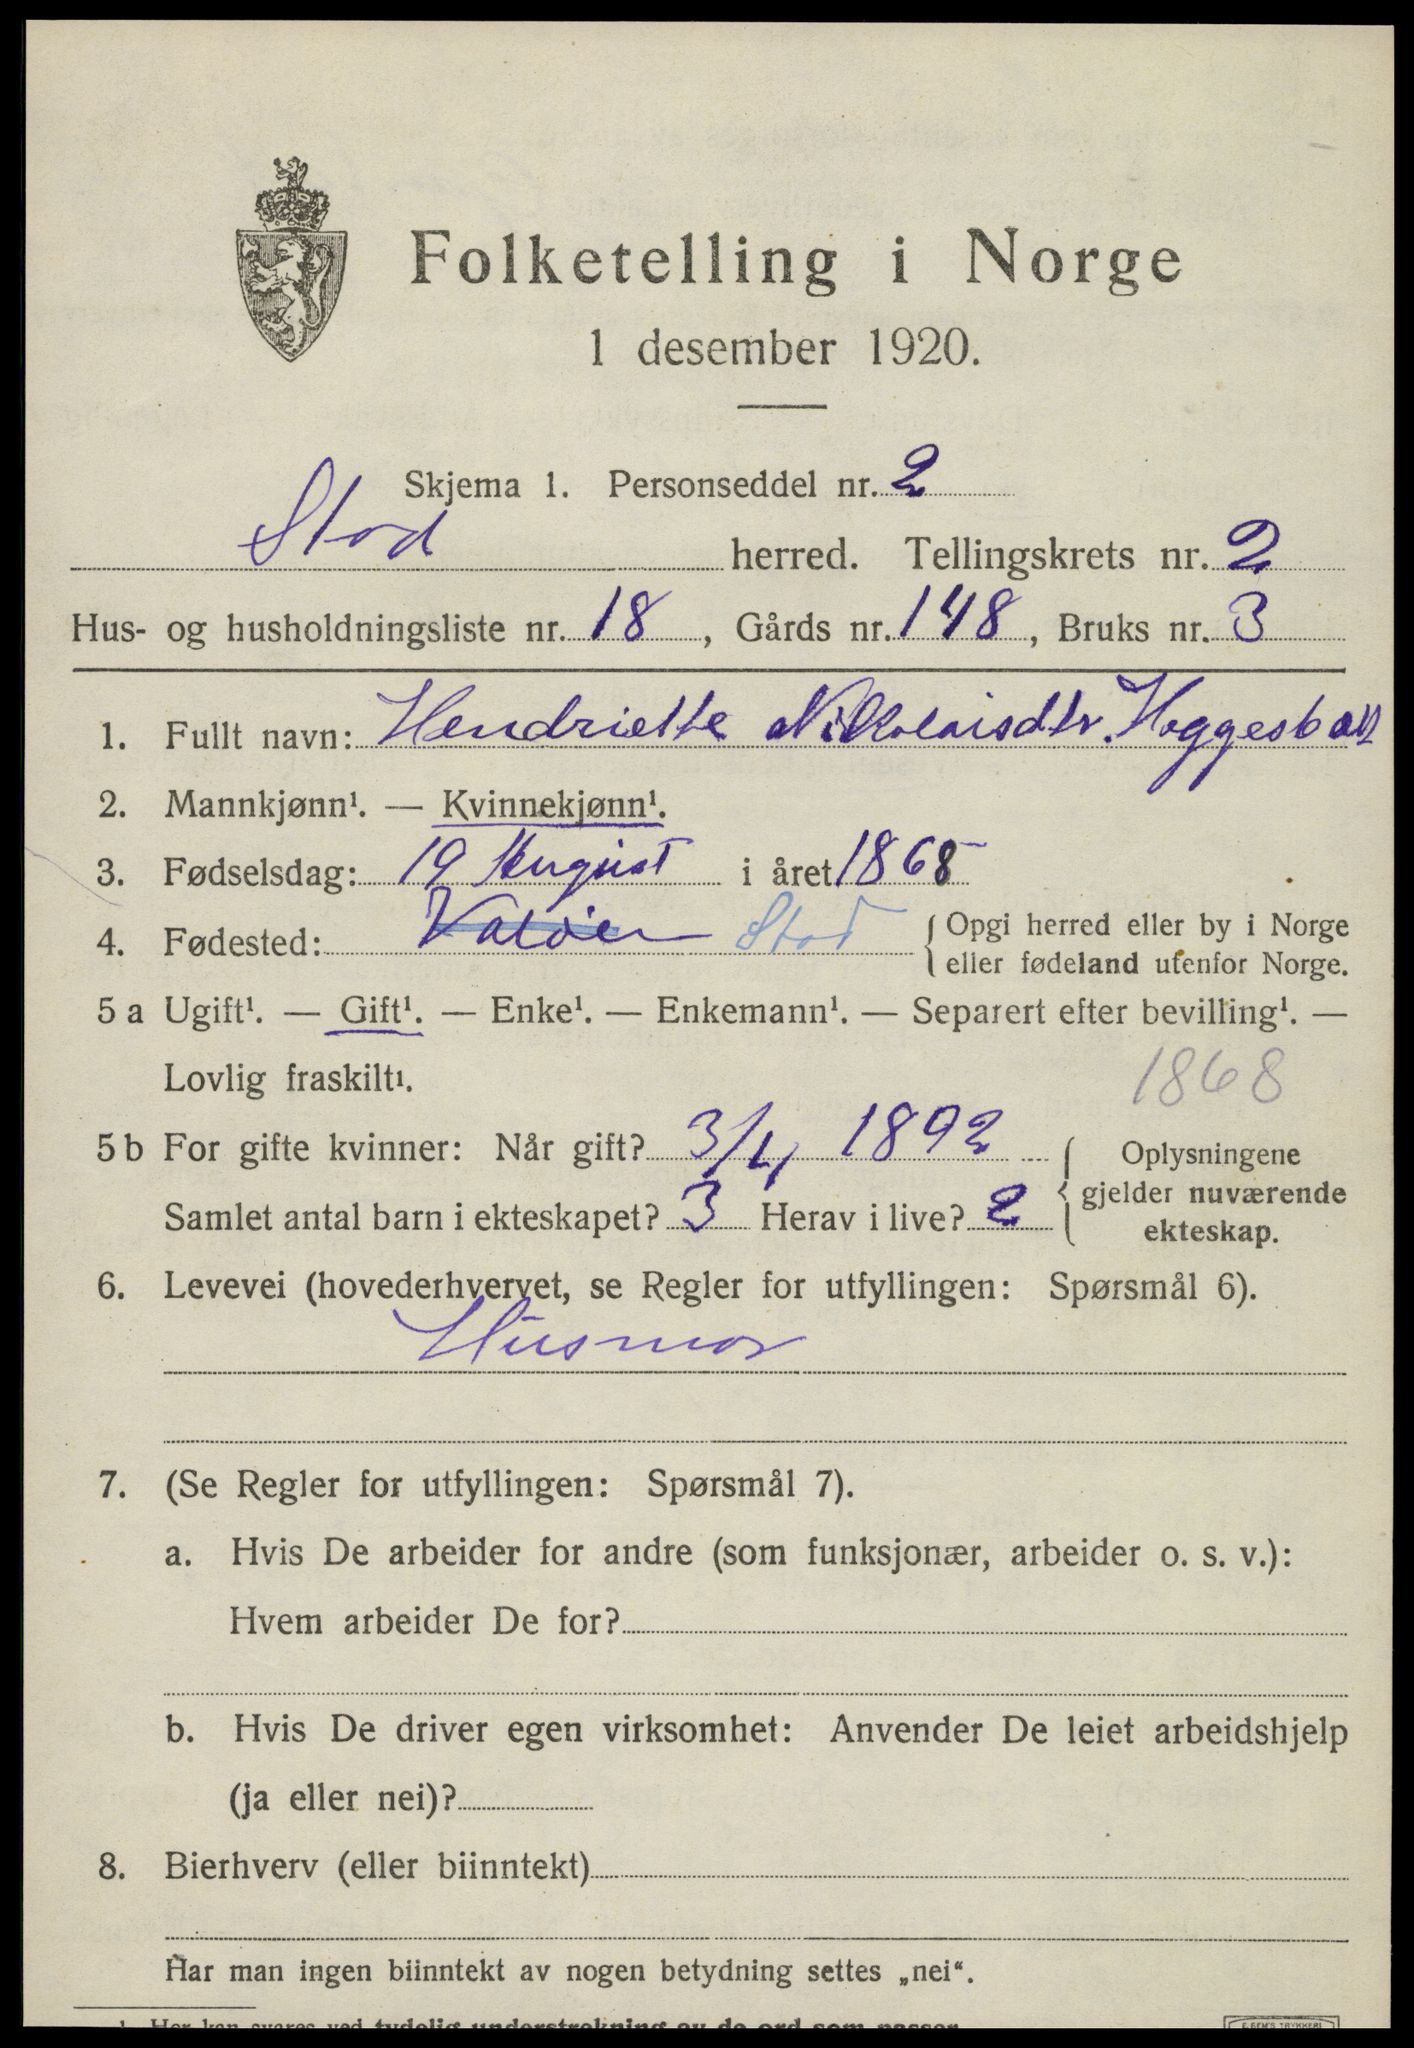 Folketelling i Norge
1 desember 1920.
Skjema 1. Personseddel nr. 2
Stod herred. Tellingskrets nr. 2
Hus- og husholdningsliste nr. 18, Gårds nr. 148, Bruks nr. 3
1. Fullt navn: Hendriette Nikolaisdtr.
2. Mannkjønn¹. — Kvinnekjønn¹.
3. Fødselsdag: 19 August i året 1868
4. Fødested: Valøen Stod { Opgi herred eller by i Norge
eller fødeland utenfor Norge.
5 a Ugift¹. — Gift¹. — Enke¹. — Enkemann¹. — Separert efter bevilling¹. —
Lovlig fraskilt¹. 1868
5 b For gifte kvinner: Når gift? 3/4 1892 { Oplysningene
gjelder nuværende
ekteskap.
Samlet antal barn i ekteskapet? 3 Herav i live? 2
6. Levevei (hovederhvervet, se Regler for utfyllingen: Spørsmål 6).
Husmor
7. (Se Regler for utfyllingen: Spørsmål 7).
a. Hvis De arbeider for andre (som funksjonær, arbeider o. s. v.):
Hvem arbeider De for?
b. Hvis De driver egen virksomhet: Anvender De leiet arbeidshjelp
(ja eller nei)?
8. Bierhverv (eller biinntekt)
Har man ingen biinntekt av nogen betydning settes „nei“.
¹ Her kan svares ved tydelig understrekning av de ord som passer.